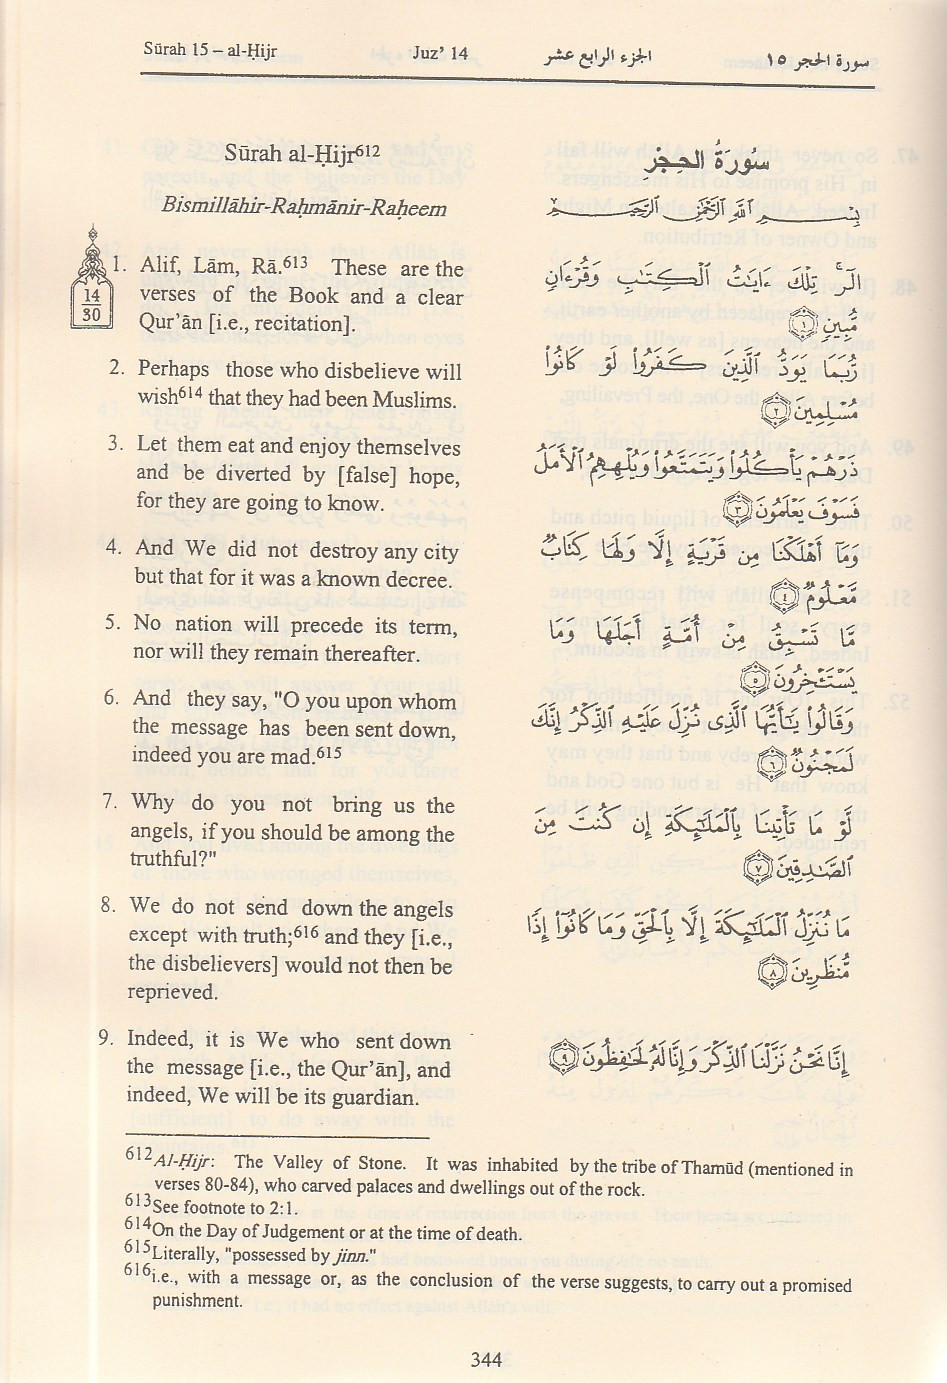 Sūrah 15 – al-Ḥijr Juz’ 14 الجزء الرابع عشر سورة الحجر ١٥
Sūrah al-Ḥijr612
سُورَةُ الحِجْرِ
Bismillāhir-Raḥmānir-Raḥeem
بِسْمِ اللَّهِ الرَّحْمَٰنِ الرَّحِيمِ
14
30
1. Alif, Lām, Rā.613 These are the
verses of the Book and a clear
Qur’ān [i.e., recitation].
الٓر ۚ تِلْكَ ءَايَٰتُ ٱلْكِتَٰبِ وَقُرْءَانٍ
مُّبِينٍ ١
2. Perhaps those who disbelieve will
wish614 that they had been Muslims.
رُّبَمَا يَوَدُّ ٱلَّذِينَ كَفَرُوا۟ لَوْ كَانُوا۟
مُسْلِمِينَ ٢
3. Let them eat and enjoy themselves
and be diverted by [false] hope,
for they are going to know.
ذَرْهُمْ يَأْكُلُوا۟ وَيَتَمَتَّعُوا۟ وَيُلْهِهِمُ ٱلْأَمَلُ
فَسَوْفَ يَعْلَمُونَ ٣
4. And We did not destroy any city
but that for it was a known decree.
وَمَآ أَهْلَكْنَا مِن قَرْيَةٍ إِلَّا وَلَهَا كِتَابٌ
مَّعْلُومٌ ٤
5. No nation will precede its term,
nor will they remain thereafter.
مَّا تَسْبِقُ مِنْ أُمَّةٍ أَجَلَهَا وَمَا
يَسْتَـْٔخِرُونَ ٥
6. And they say, "O you upon whom
the message has been sent down,
indeed you are mad.615
وَقَالُوا۟ يَٰٓأَيُّهَا ٱلَّذِى نُزِّلَ عَلَيْهِ ٱلذِّكْرُ إِنَّكَ
لَمَجْنُونٌ ٦
7. Why do you not bring us the
angels, if you should be among the
truthful?"
لَّوْ مَا تَأْتِينَا بِٱلْمَلَٰٓئِكَةِ إِن كُنتَ مِنَ
ٱلصَّٰدِقِينَ ٧
8. We do not send down the angels
except with truth;616 and they [i.e.,
the disbelievers] would not then be
reprieved.
مَا نُنَزِّلُ ٱلْمَلَٰٓئِكَةَ إِلَّا بِٱلْحَقِّ وَمَا كَانُوٓا۟ إِذًا
مُّنظَرِينَ ٨
9. Indeed, it is We who sent down
the message [i.e., the Qur’ān], and
indeed, We will be its guardian.
إِنَّا نَحْنُ نَزَّلْنَا ٱلذِّكْرَ وَإِنَّا لَهُۥ لَحَٰفِظُونَ ٩
612Al-Ḥijr: The Valley of Stone. It was inhabited by the tribe of Thamūd (mentioned in
verses 80-84), who carved palaces and dwellings out of the rock.
613See footnote to 2:1.
614On the Day of Judgement or at the time of death.
615Literally, "possessed by jinn."
616i.e., with a message or, as the conclusion of the verse suggests, to carry out a promised
punishment.
344